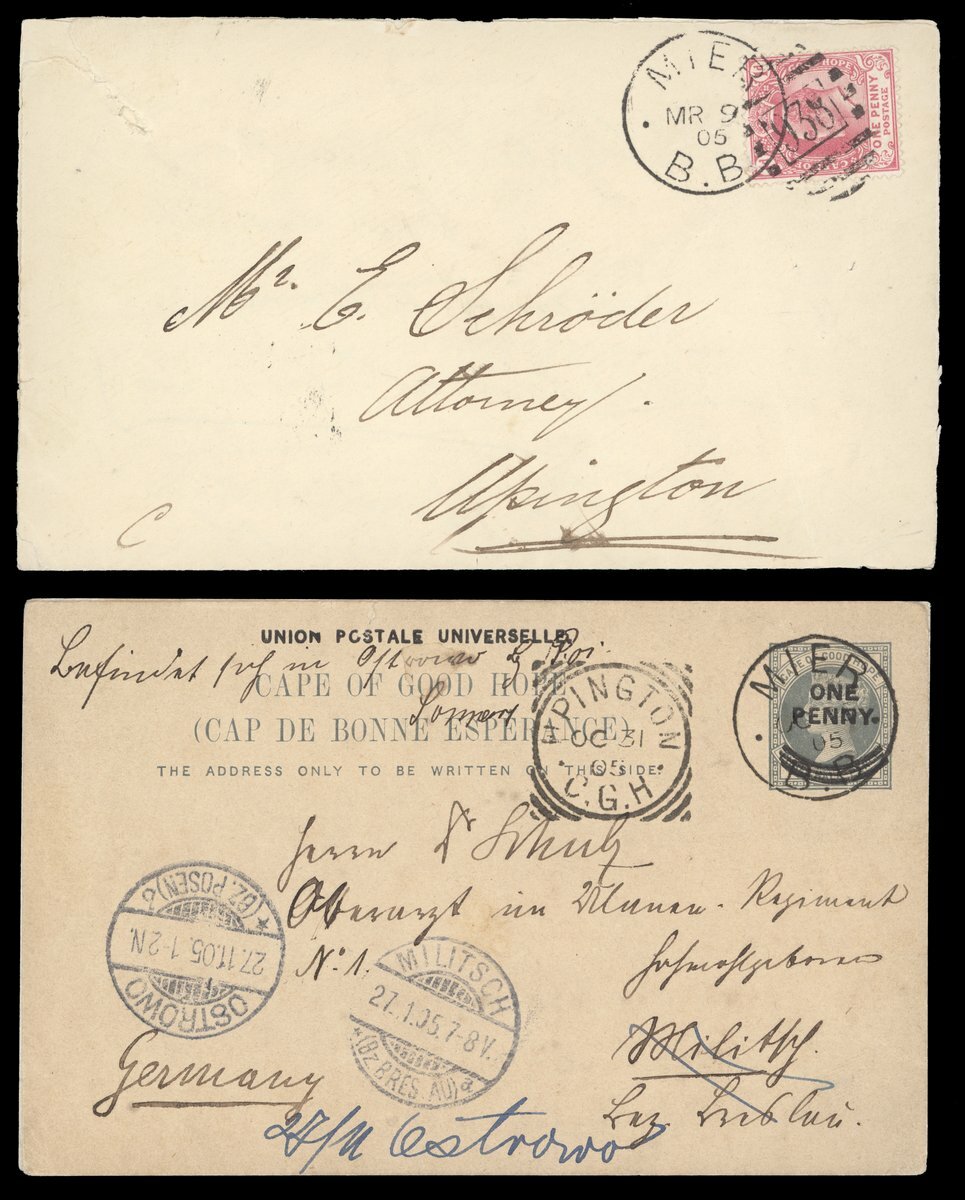 MIER
MR 9
05
B.B
138
HOPE
ONE PENNY
POSTAGE
Mr. E. Schröder
Attorney.
Upington
C
UNION POSTALE UNIVERSELLE.
Befindet sich in Ostrowo
CAPE OF GOOD HOPE
(CAP DE BONNE ESPERANCE)
THE ADDRESS ONLY TO BE WRITTEN ON THIS SIDE.
UPINGTON
OC 31
05
C.G.H
MIER
ONE
PENNY.
05
B.B
Herrn Dr Schulz
Oberarzt im Ulanen-Regiment
No 1.
OSTROWO
27.11.05.1-2N.
*(BZ. POSEN)
MILITSCH
27.1.05.7-8V.
*(BZ. BRES.AU)a
Militsch.
Bez. Breslau.
Germany
27/11 Ostrowo